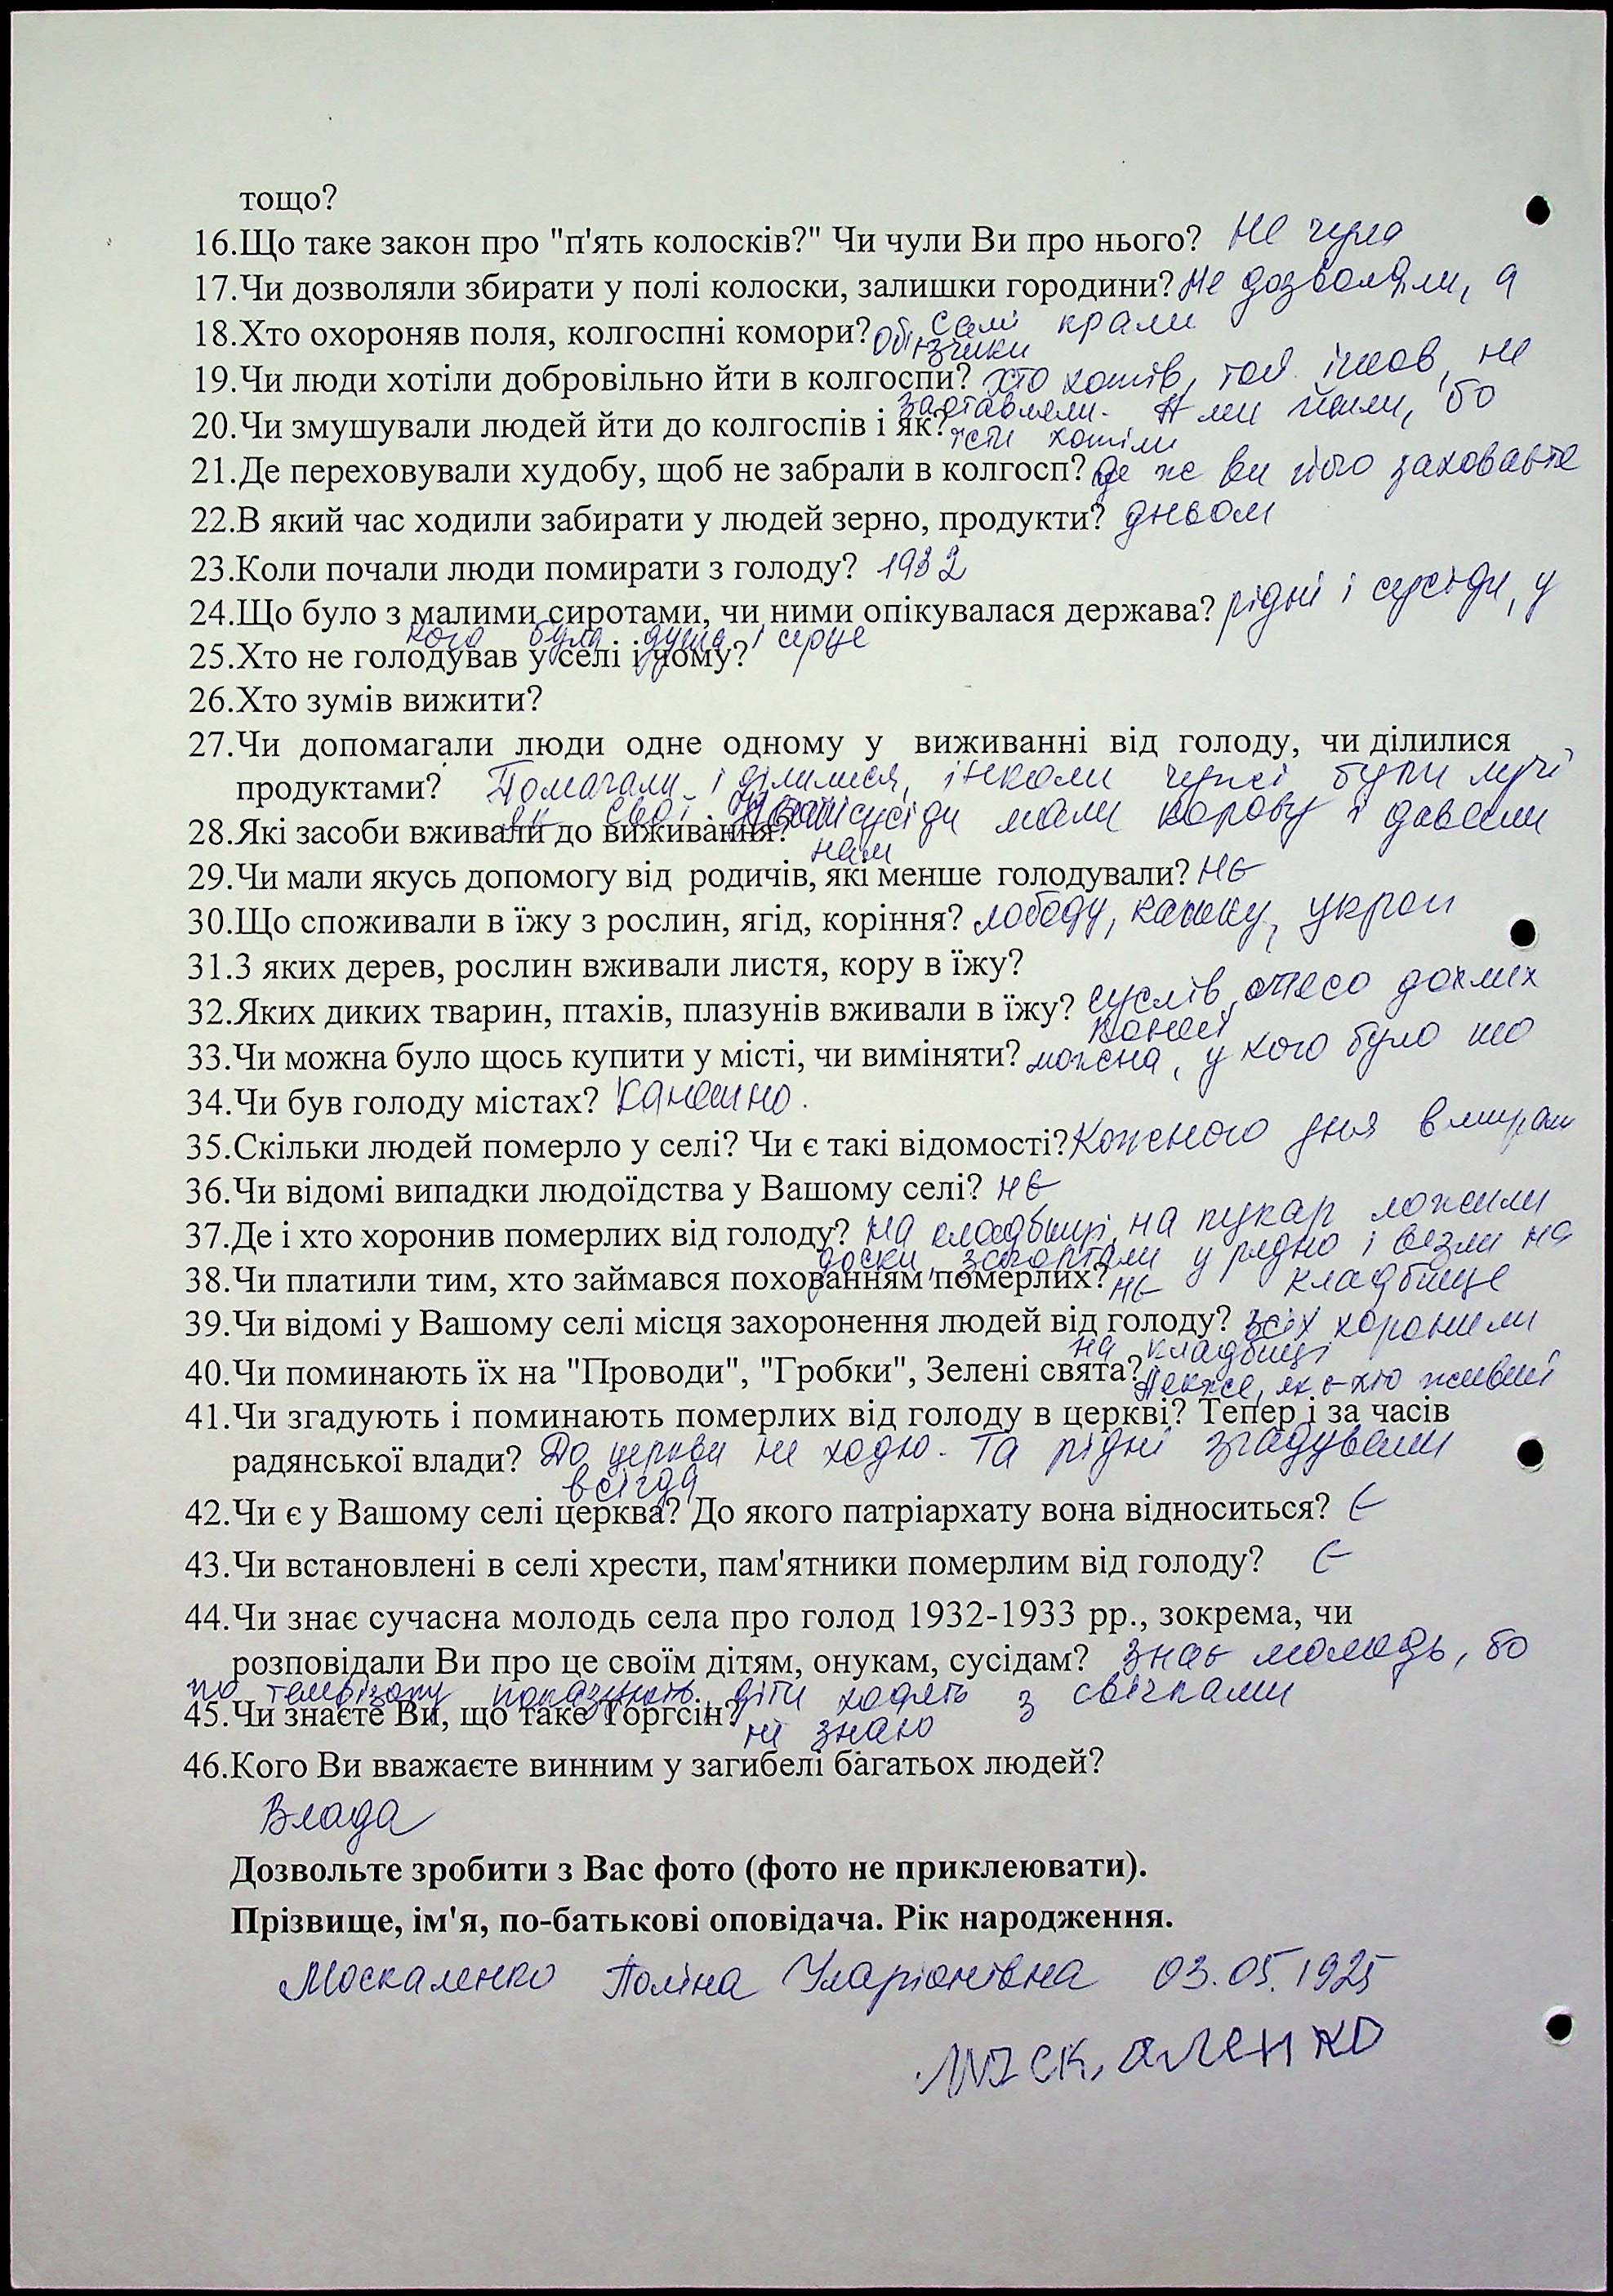 тощо?
16.Що таке закон про "п'ять колосків?" Чи чули Ви про нього? Не чула
17.Чи дозволяли збирати у полі колоски, залишки городини? Не дозволяли, а
самі крали
18.Хто охороняв поля, колгоспні комори? Об'їзчики
19.Чи люди хотіли добровільно йти в колгоспи? хто хотів, той ішов, не
заставляли. А ми йшли, бо
20.Чи змушували людей йти до колгоспів і як? їсти хотіли
21.Де переховували худобу, щоб не забрали в колгосп? Де ж ви його заховаєте
22.В який час ходили забирати у людей зерно, продукти? Дньом
23.Коли почали люди помирати з голоду? 1932
24.Що було з малими сиротами, чи ними опікувалася держава? рідні і сусіди, у
кого була душа і серце
25.Хто не голодував у селі і чому?
26.Хто зумів вижити?
27.Чи допомагали люди одне одному у виживанні від голоду, чи ділилися
продуктами? Помагали і ділилися, інколи чужі були лучі
як свої. сусіди мали корову і давали
28.Які засоби вживали до виживання?
нам
29.Чи мали якусь допомогу від родичів, які менше голодували? НЄ
30.Що споживали в їжу з рослин, ягід, коріння? лободу, кашку, укроп
31.З яких дерев, рослин вживали листя, кору в їжу?
32.Яких диких тварин, птахів, плазунів вживали в їжу? суслів, мясо дохлих
коней
33.Чи можна було щось купити у місті, чи виміняти? можна, у кого було що
34.Чи був голоду містах? Канєшно.
35.Скільки людей померло у селі? Чи є такі відомості? Кожного дня вмирали
36.Чи відомі випадки людоїдства у Вашому селі? НЄ
37.Де і хто хоронив померлих від голоду? на кладбищі, на пукар ложили
доски, загортали у рядно і везли на
кладбище
38.Чи платили тим, хто займався похованням померлих? НЄ
39.Чи відомі у Вашому селі місця захоронення людей від голоду? Всіх хоронили
на кладбищі
40.Чи поминають їх на "Проводи", "Гробки", Зелені свята? А якже, як є хто живий
41.Чи згадують і поминають померлих від голоду в церкві? Тепер і за часів
радянської влади? До церкви не ходю. Та рідні згадували
всігда
42.Чи є у Вашому селі церква? До якого патріархату вона відноситься? Є
43.Чи встановлені в селі хрести, пам'ятники померлим від голоду? Є
44.Чи знає сучасна молодь села про голод 1932-1933 рр., зокрема, чи
розповідали Ви про це своїм дітям, онукам, сусідам? Знає молодь, бо
по телевізору показують, діти ходять з свічками
45.Чи знаєте Ви, що таке Торгсін? не знаю
46.Кого Ви вважаєте винним у загибелі багатьох людей?
Влада
Дозвольте зробити з Вас фото (фото не приклеювати).
Прізвище, ім'я, по-батькові оповідача. Рік народження.
Москаленко Поліна Уларіонівна 03.05.1925
Москаленко